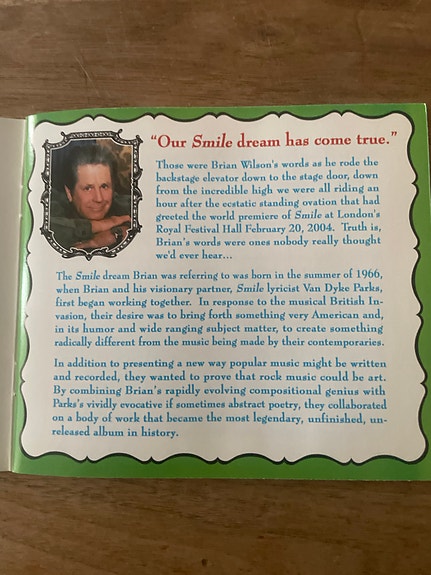 "Our Smile dream has come true."
Those were Brian Wilson's words as he rode the
backstage elevator down to the stage door, down
from the incredible high we were all riding an
hour after the ecstatic standing ovation that had
greeted the world premiere of Smile at London's
Royal Festival Hall February 20, 2004. Truth is,
Brian's words were ones nobody really thought
we'd ever hear...
The Smile dream Brian was referring to was born in the summer of 1966,
when Brian and his visionary partner, Smile lyricist Van Dyke Parks,
first began working together. In response to the musical British In-
vasion, their desire was to bring forth something very American and,
in its humor and wide ranging subject matter, to create something
radically different from the music being made by their contemporaries.
In addition to presenting a new way popular music might be written
and recorded, they wanted to prove that rock music could be art.
By combining Brian's rapidly evolving compositional genius with
Parks's vividly evocative if sometimes abstract poetry, they collaborated
on a body of work that became the most legendary, unfinished, un-
released album in history.